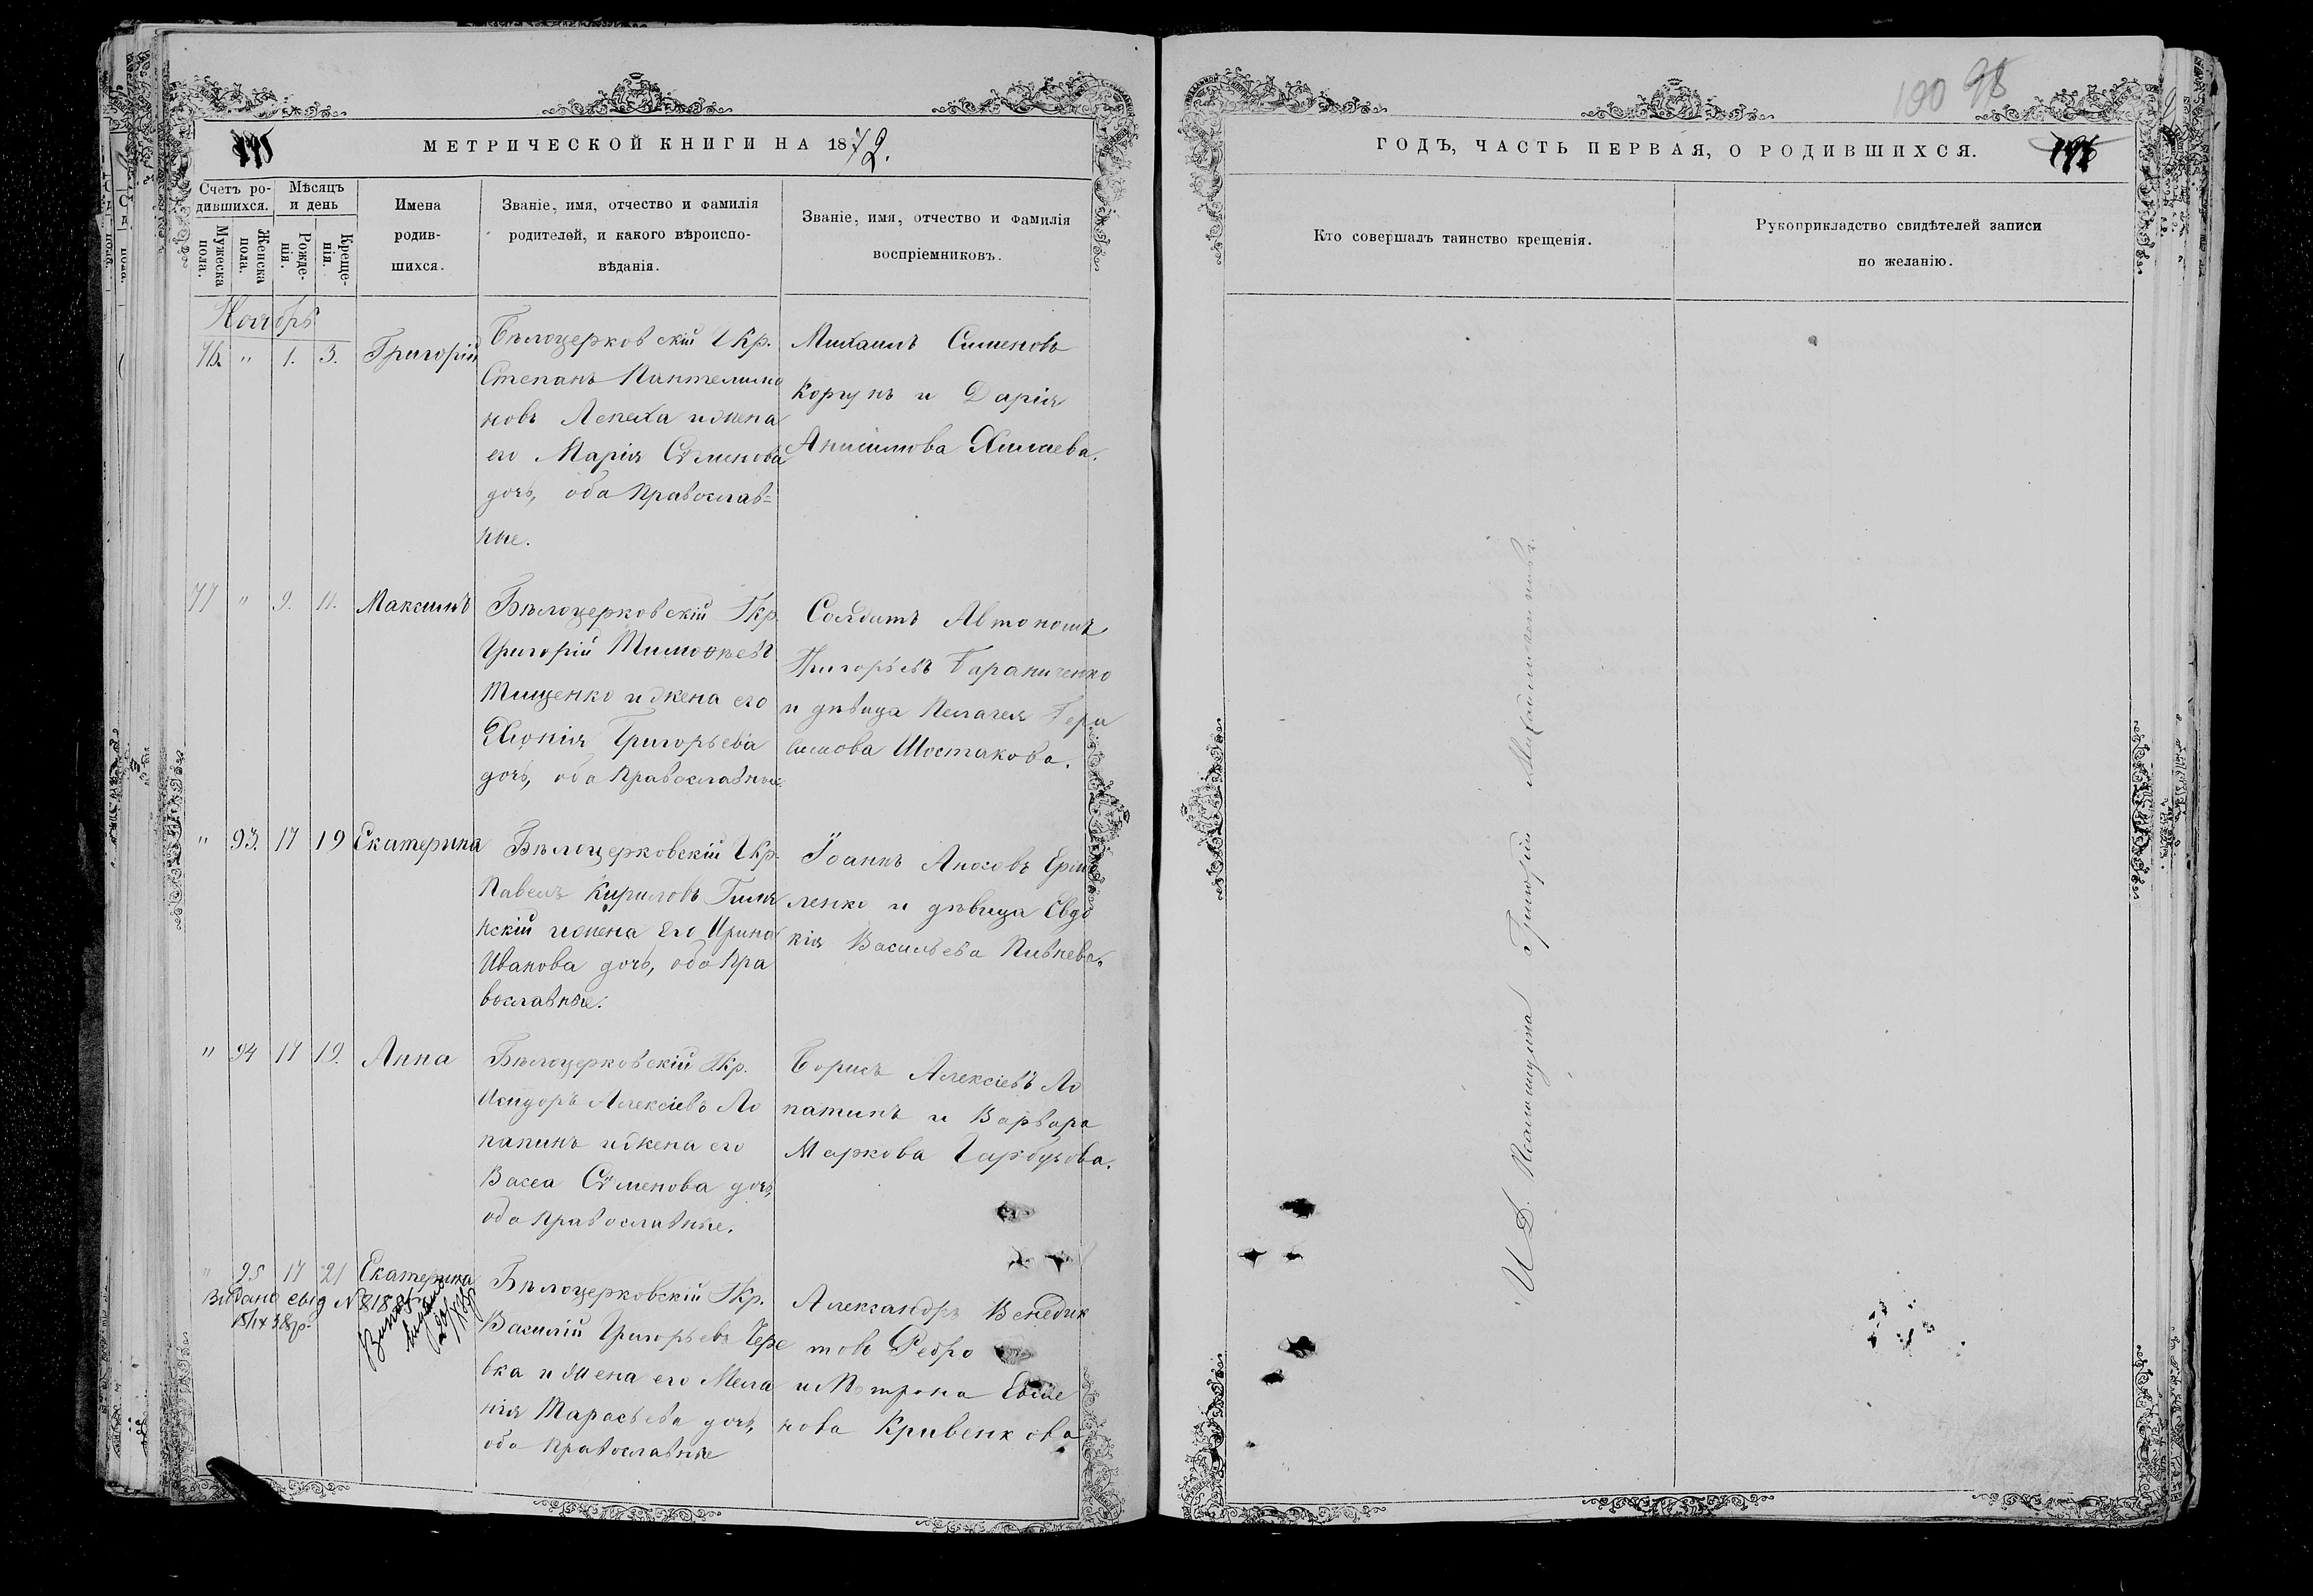 МЕТРИЧЕСКОЙ КНИГИ НА 1872.
Счетъ ро-
дившихся.
Мѣсяцъ
и день
Мужеска
пола.
Женска
пола.
Рожде-
нія.
Креще-
нія.
Имена
родив-
шихся.
Званіе, имя, отчество и фамилія
родителей, и какого вѣроиспо-
вѣданія.
Званіе, имя, отчество и фамилія
воспріемниковъ.
Ноябрь
76. " 1. 3. Григорій
Бѣлоцерковскій Г Кр.
Степанъ Пантелимо
новъ Лепеха и жена
его Марія Сѵменова
дочь, оба Православ=
ные.
Михаилъ Сименовъ
Коргунъ и Дарія
Анисимова
77 " 9. 11. Максимъ
Бѣлоцерковскій Гкр.
Григорій Тимоѳеевъ
Тищенко и жена его
Хіонія Григорьева
дочь, оба Православные
Солдатъ Автономъ
Григорьевъ Бараниченко
и дѣвица Пелагея Гера
симова Шостакова.
" 93. 17 19 Екатерина
Бѣлоцерковскій Г Кр.
Павелъ Кириловъ
нскій и жена его Ирина
Иванова дочь, оба Пра
вославные.
Іоаннъ Ерма
ленко и дѣвица Евдо
кія Васильева Пивнева.
" 94 17 19. Анна
Бѣлоцерковскій ГКр.
Исидоръ Алексіевъ Ло
патинъ и жена его
Васса Сѵменова дочь,
оба Православные.
Борисъ Алексіевъ Ло
патинъ и Варвара
Маркова Гарбузова.
" 95 17 21 Екатерина
Видано свід N 8188
Бѣлоцерковскій ГКр.
Василій Григорьевъ Чере
вка и жена его Мела
нія Тарасьева дочь,
оба Православные
Александръ Венедик
товъ Редро
и Мотрона Евсие
нова Кривенкова
100 98
ГОДЪ, ЧАСТЬ ПЕРВАЯ, О РОДИВШИХСЯ.
Кто совершалъ таинство крещенія.
Рукоприкладство свидѣтелей записи
по желанію.
И. Д. Псаломщика Григорій